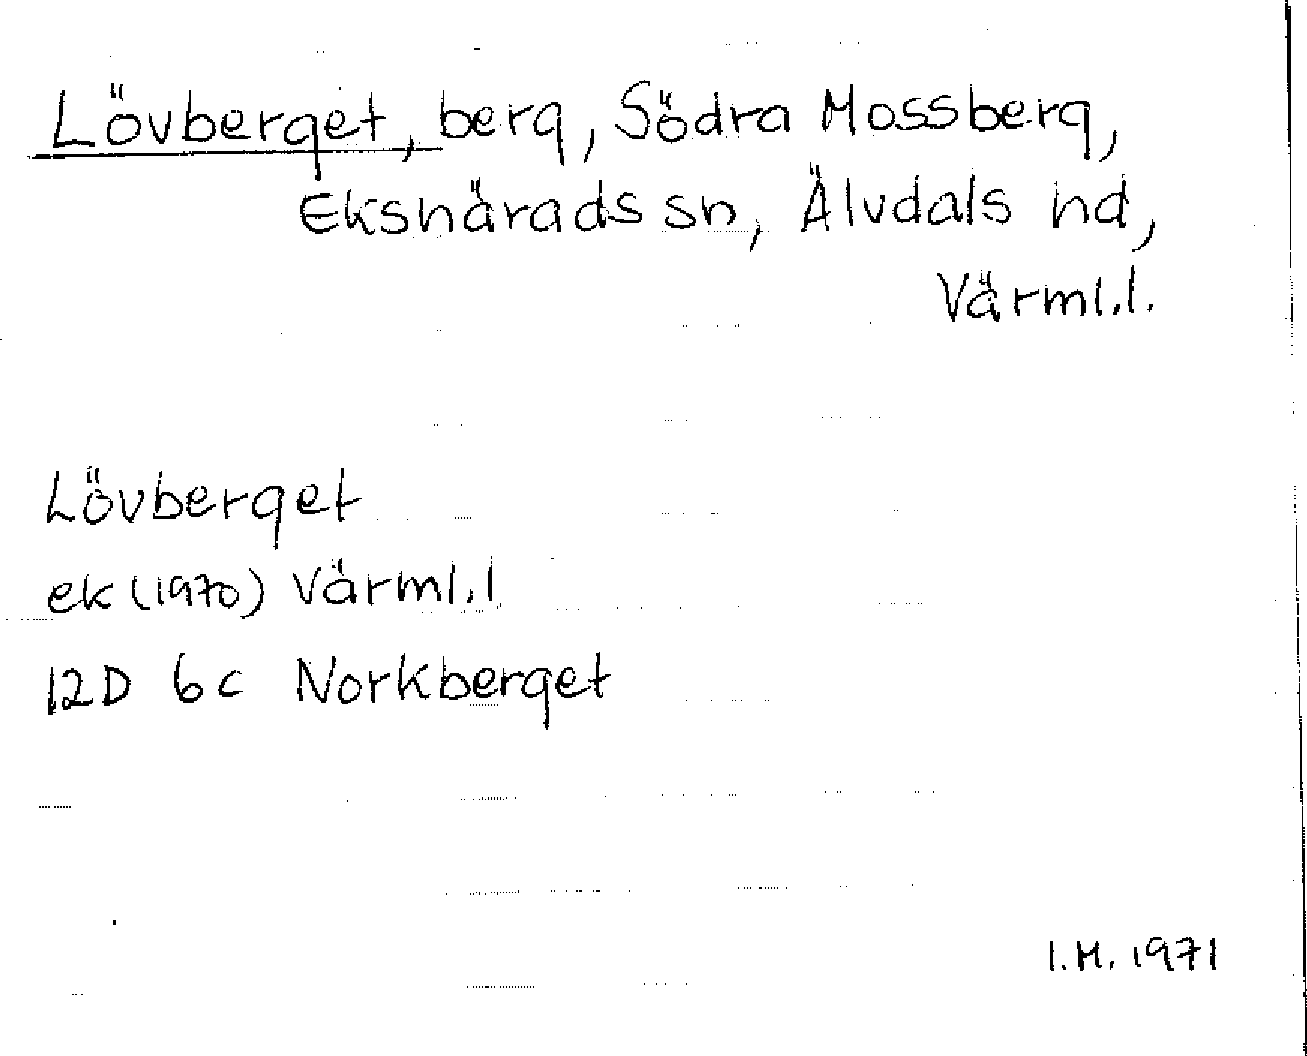 Lövberget, berg, Södra Mossberg,
Ekshärads sn, Älvdals hd,
Värml.l.
Lövberget
ek (1970) Värml.l
12D 6c Norkberget
I.M. 1971